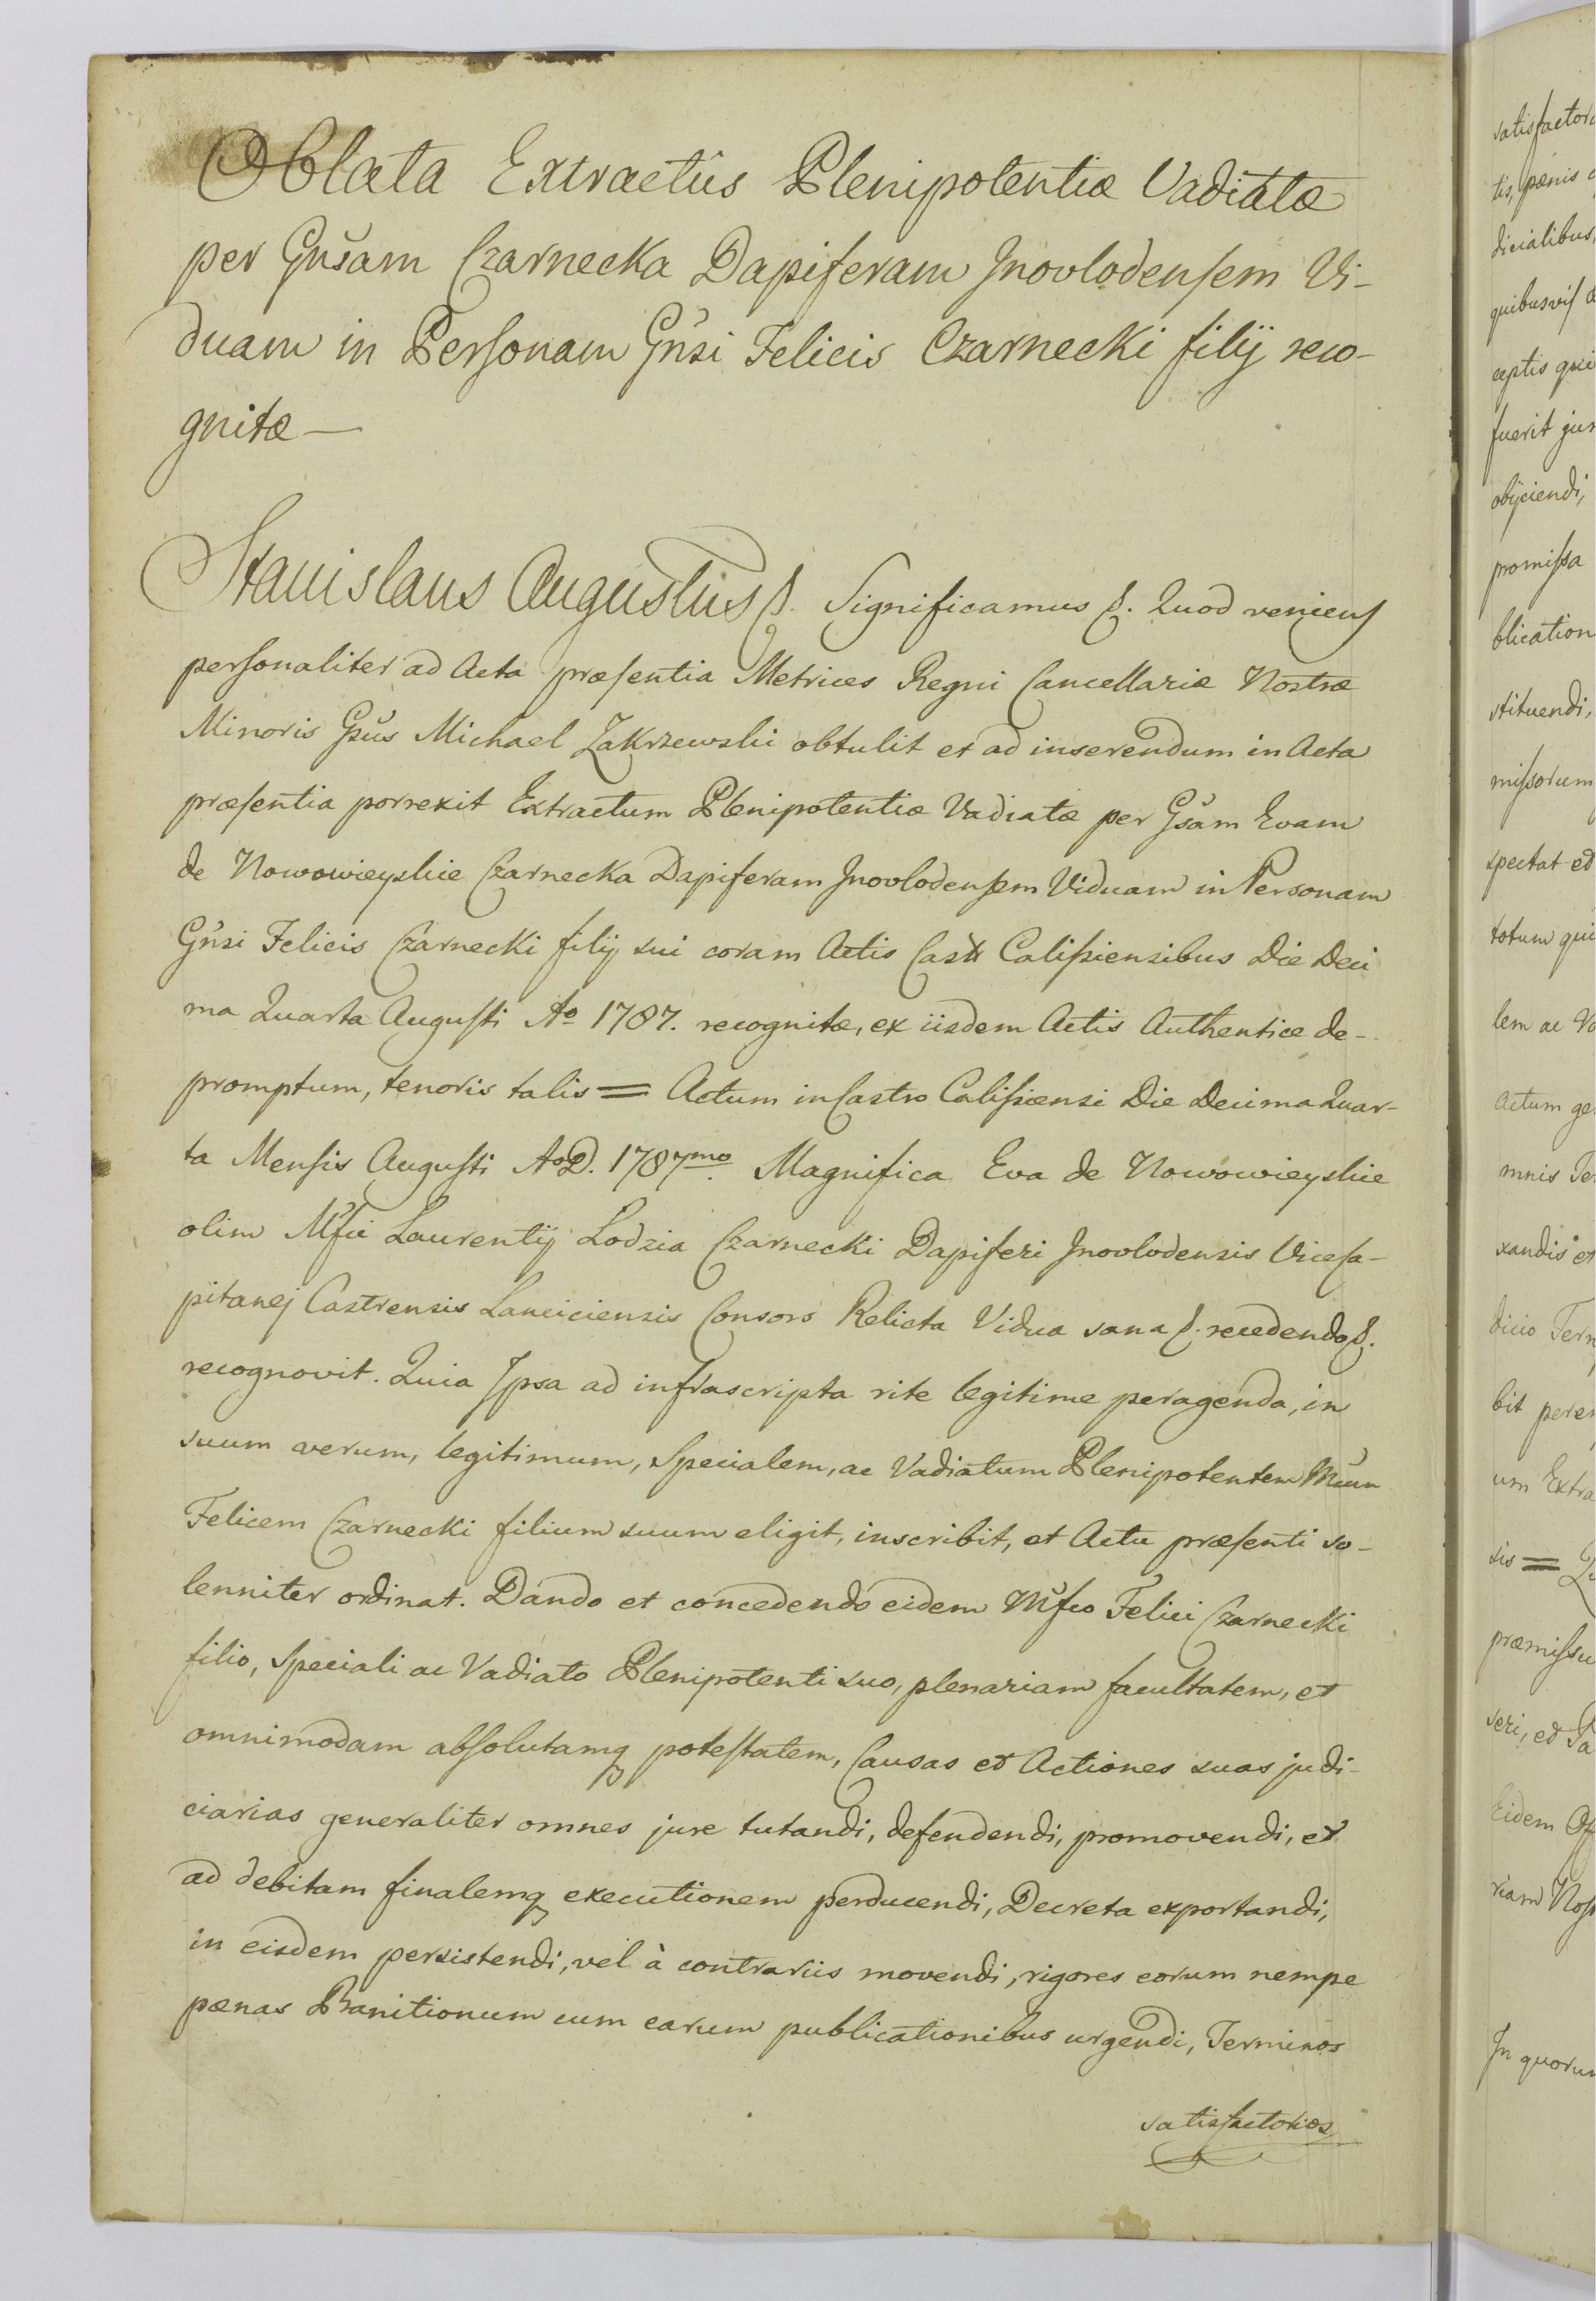 Oblata Extractûs Plenipotentiæ Vadiatæ
per Gnsam Czarnecka Dapiferam Jnovlodensem Vi-
duam in Personam Gnsi Felicis Czarnecki filij reco-
gnitæ —
Stanislaus Augustus &. Significamus &. Quod veniens
personaliter ad Acta præsentia Metrices Regni Cancellariæ Nostræ
Minoris Gsus Michael Zakrzewski obtulit et ad inserendum in Acta
præsentia porrexit Extractum Plenipotentiæ Vadiatæ per Gsam Evam
de Nowowieyskie Czarnecka Dapiferam Jnovlodensem Viduam in Personam
Gnsi Felicis Czarnecki filij sui coram Actis Castr Calissiensibus Die Deci
ma Quarta Augusti Ao 1787. recognitæ, ex iisdem Actis Authentice de-
promptum, tenoris talis = Actum in Castro Calissiensi Die Decima Quar-
ta Mensis Augusti AoD. 1787mo. Magnifica Eva de Nowowieyskie
olim Mfci Laurentij Lodzia Czarnecki Dapiferi Jnovlodensis Viceca-
pitanej Castrensis Lanciciensis Consors Relicta Vidua sana &. recedendo &.
recognovit. Quia Jpsa ad infrascripta rite legitime peragenda, in
suum verum, legitimum, Specialem, ac Vadiatum Plenipotentem Mcum
Felicem Czarnecki filium suum eligit, inscribit, et Actu præsenti so-
lenniter ordinat. Dando et concedendo eidem Mfco Felici Czarnecki
filio, Speciali ac Vadiato Plenipotenti suo, plenariam facultatem, et
omnimodam absolutamq potestatem, Causas et Actiones suas judi-
ciarias generaliter omnes jure tutandi, defendendi, promovendi, et
ad debitam finalemq executionem perducendi, Decreta exportandi,
in eisdem persistendi, vel à contrariis movendi, rigores eorum nempe
pænas Banitionum cum earum publicationibus urgendi, Terminos
satisfactorios
satisfactor
tis, pænis
dicialibus,
quibusvis
ceptis
fuerit
objiciendi,
promissa
blication
stituendi,
missorum
spectat et
totum
lem ac
Actum
mnis
xandis et
dicio
bit
um Extra
sis =
præmissu
seri, et
Eidem
riam
In quorum